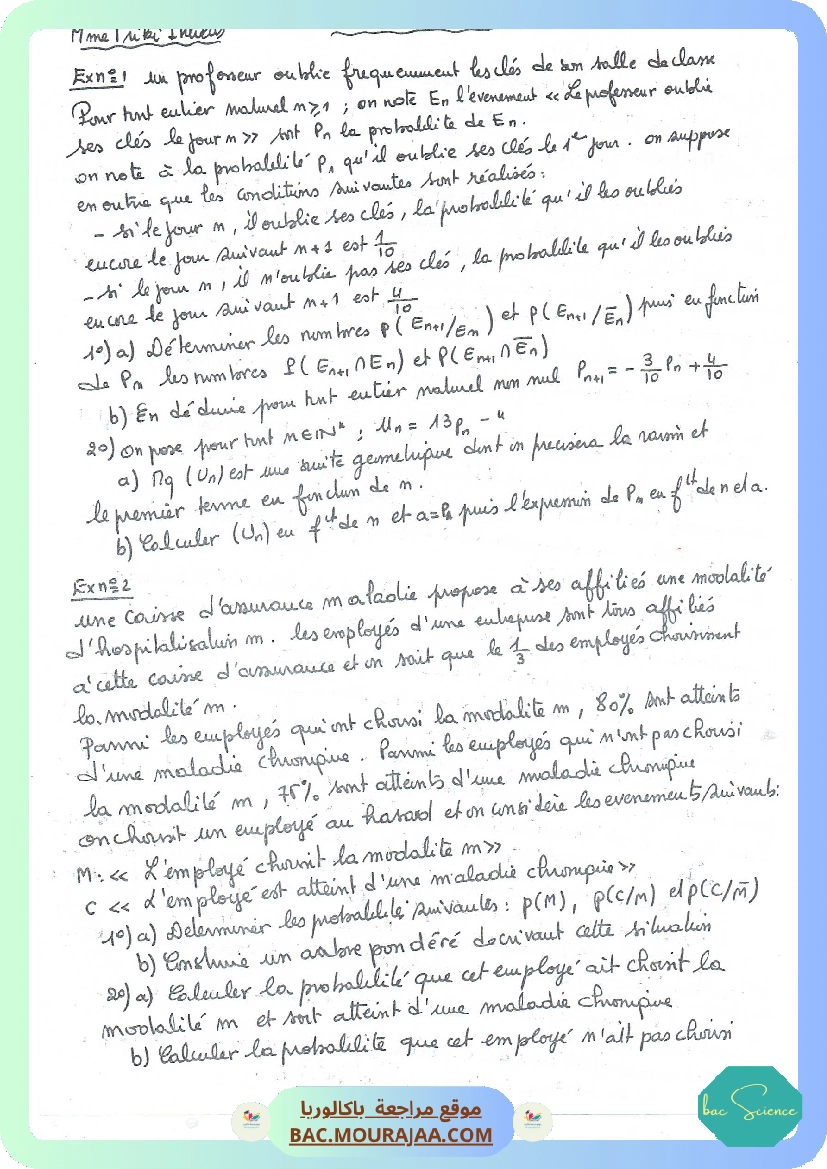 Mme Triki
Ex n°1 un professeur oublie frequemment les clés de son salle de classe
Pour tout entier naturel n ≥ 1 ; on note En l'évenement << Le professeur oublié
ses clés le jour n >> soit Pn la probabilite de En.
on note a la probabilité P1 qu'il oublie ses clés le 1er jour. on suppose
en outre que les conditions suivantes sont réalisés :
- si le jour n, il oublie ses clés, la probabilité qu'il les oubliés
encore le jour suivant n+1 est 1/10
- si le jour n, il n'oublie pas ses clés, la probabilite qu'il les oubliés
encore le jour suivant n+1 est 4/10
1°) a) Déterminer les nombres p(En+1/En) et p(En+1/E̅n) puis en fonction
de Pn les nombres P(En+1 ∩ En) et P(En+1 ∩ E̅n)
b) En déduire pour tout entier naturel non nul Pn+1 = - 3/10 Pn + 4/10
2°) On pose pour tout n ∈ IN* ; Un = 13Pn - 4
a) Mq (Un) est une suite geometrique dont on precisera la raison et
le premier terme en fonction de n.
b) Calculer (Un) en fct de n et a=P1 puis l'expression de Pn en fct de n et a.
Ex n°2
une caisse d'assurance maladie propose à ses affiliés une modalité
d'hospitalisation m. les employés d'une entreprise sont tous affiliés
a' cette caisse d'assurance et on sait que le 1/3 des employés choisissent
la modalité m.
Parmi les employés qui ont choisi la modalité m, 80% sont atteints
d'une maladie chronique. Parmi les employés qui n'ont pas choisi
la modalité m, 75% sont atteints d'une maladie chronique
on choisit un employé au hasard et on considère les evenements suivants:
M : << L'employé choisit la modalité m >>
C << L'employé est atteint d'une maladie chronique >>
1°) a) Determiner les probabilités suivantes : p(M), p(C/M) et p(C/M̅)
b) Construire un arbre pondéré decrivant cette situation
2°) a) Calculer la probabilité que cet employé ait choisit la
modalité m et soit atteint d'une maladie chronique
b) Calculer la probabilite que cet employé n'ait pas choisi
موقع مراجعة باكالوريا
BAC.MOURAJAA.COM
bac Science